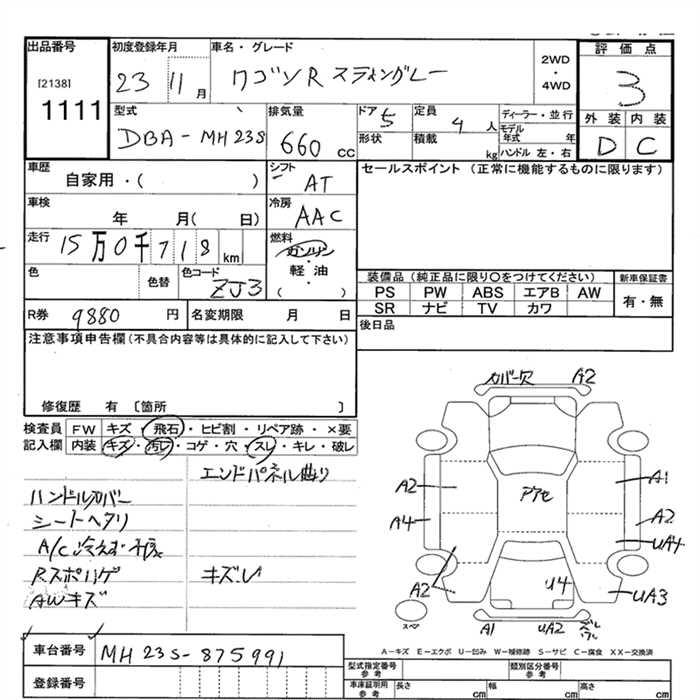 出品番号
[2138]
1111
初度登録年月
23 11月
車名・グレード
ワゴンR スティングレー
2WD
・
4WD
評価点
3
外装 内装
D C
型式
DBA-MH23S
排気量
660 cc
ドア 5
形状
定員 4 人
積載 kg
ディーラー・並行
モデル年式 年
ハンドル 左・右
車歴
自家用・( )
シフト
AT
車検
年 月( 日)
冷房
AAC
走行
15万0千718km
燃料
ガソリン
・
軽油
( )
色
色替
色コード
ZJ3
R券 9880 円
名変期限 月 日
セールスポイント (正常に機能するものに限ります)
装備品(純正品に限り〇をつけてください)
PS PW ABS エアB AW
SR ナビ TV カワ
新車保証書
有・無
後日品
注意事項申告欄(不具合内容等は具体的に記入して下さい)
修復歴 有 〔箇所 〕
検査員記入欄
FW キズ・飛石・ヒビ割・リペア跡・×要
内装 キズ・汚レ・コゲ・穴・スレ・キレ・破レ
エンドパネル曲り
ハンドルカバー
シートヘタリ
A/C冷えず
Rスポハゲ
キズU
AWキズ
カバー欠 A2
A2
A1
A4
A2
UA4
A2
U4
UA3
A1
UA2
スペア
A-キズ E-エクボ U-凹み W-補修跡 S-サビ C-腐食 XX-交換済
車台番号
MH23S-875991
登録番号
型式指定番号
参考
類別区分番号
参考
車庫証明用
参考
長さ cm
幅 cm
高さ cm